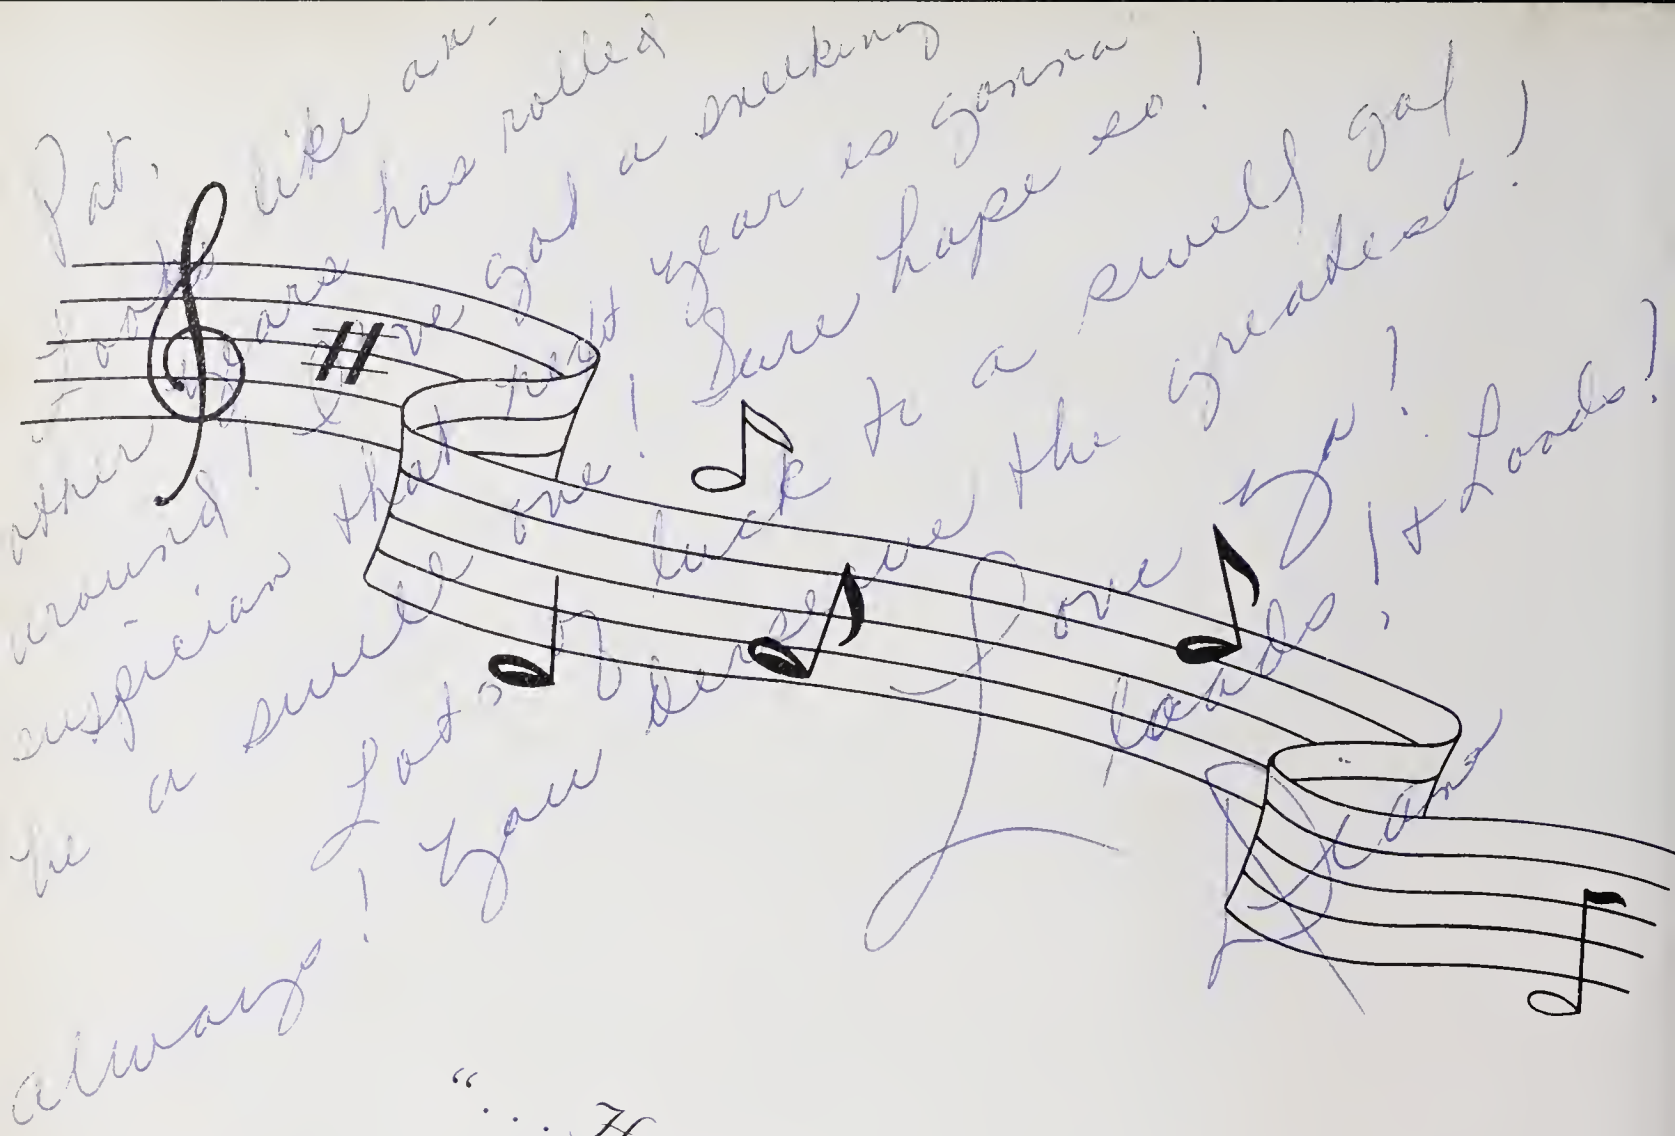 Pat,
Looks like an-
other years has rolled
around! I have got a sneeking
suspician that nixt year is gonna
be a swell one! Sure hope so!
Lots of luck to a swell gal
always! You deserve the greatest!
Love Ya!
loads! + Loads!
“. . . H